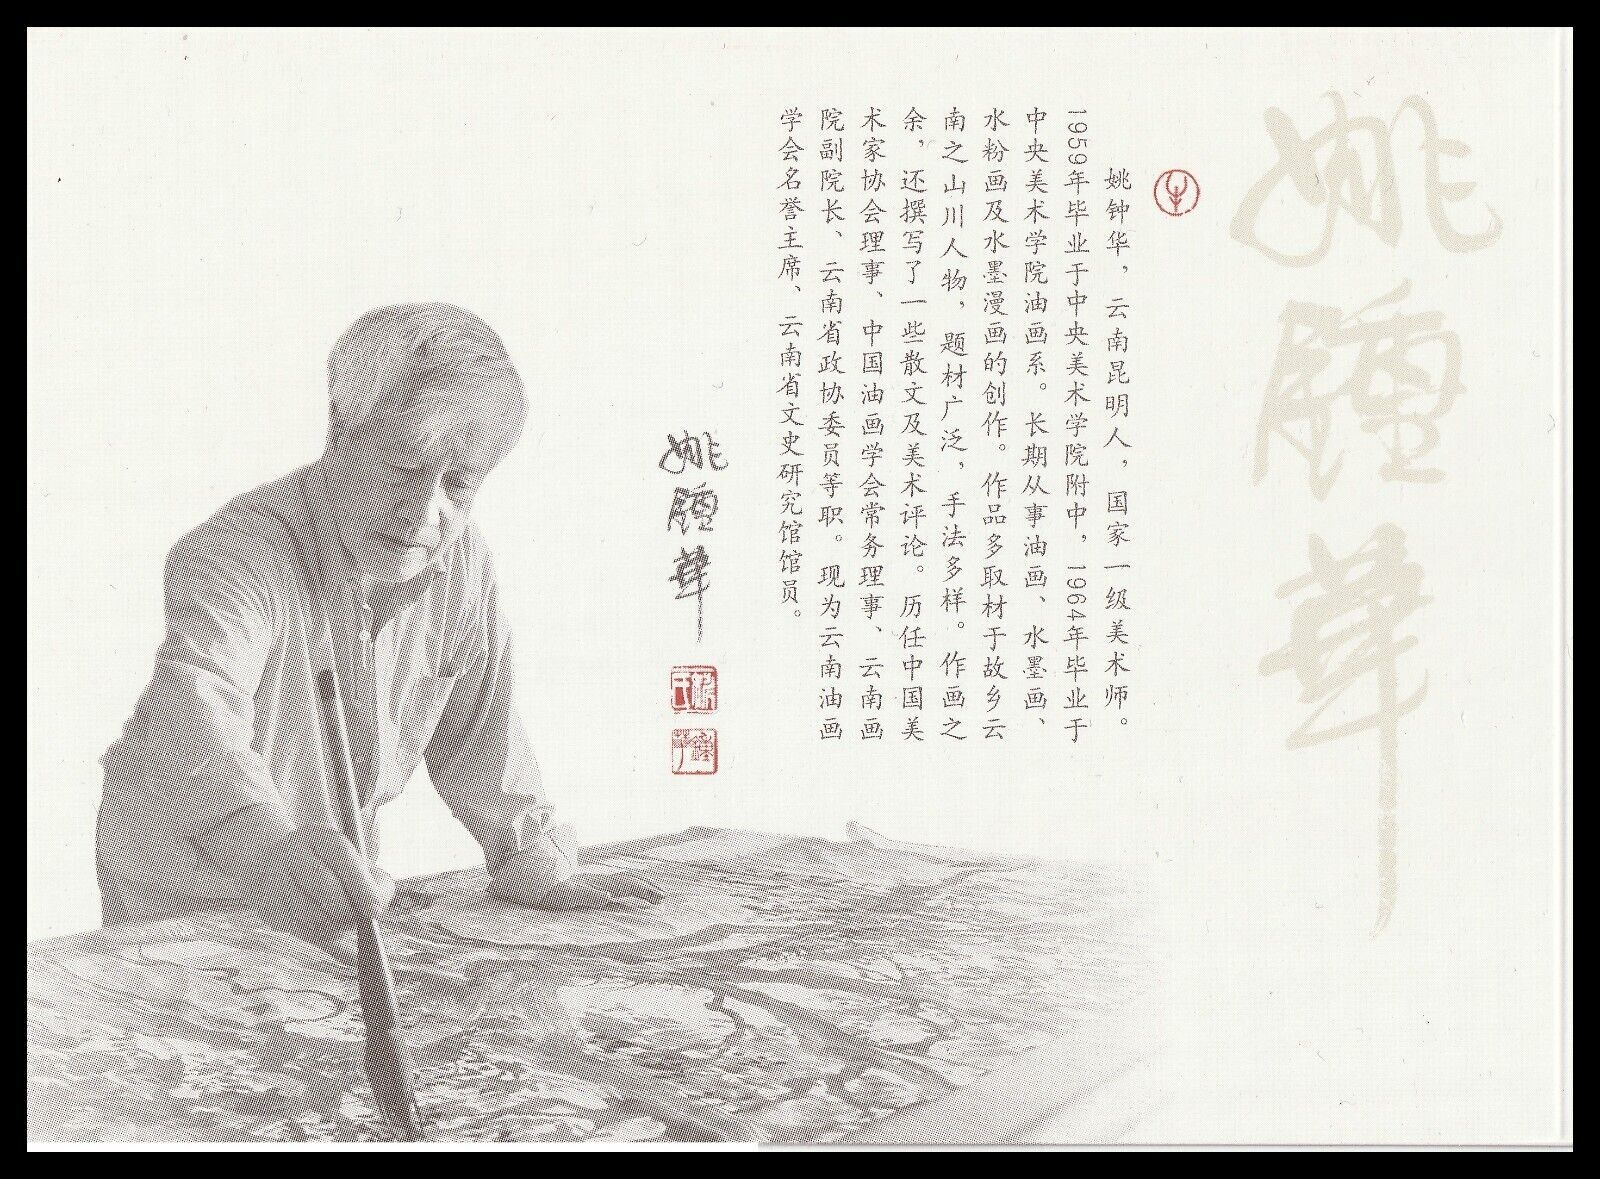 姚鍾華
姚钟华，云南昆明人，国家一级美术师。
1959年毕业于中央美术学院附中，1964年毕业于
中央美术学院油画系。长期从事油画、水墨画、
水粉画及水墨漫画的创作。作品多取材于故乡云
南之山川人物，题材广泛，手法多样。作画之
余，还撰写了一些散文及美术评论。历任中国美
术家协会理事、中国油画学会常务理事、云南画
院副院长、云南省政协委员等职。现为云南油画
学会名誉主席、云南省文史研究馆馆员。
姚鍾華